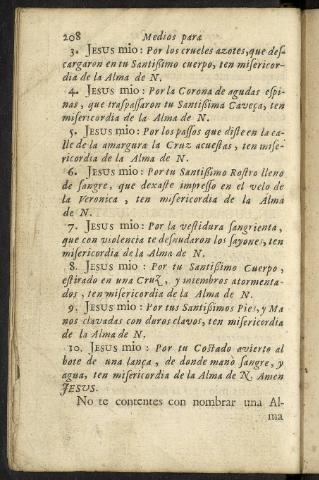 208 Medios para
3. JESUS mio: Por los crueles azotes, que des-
cargaron en tu Santißimo cuerpo, ten misericor-
dia de la Alma de N.
4. JESUS mio: Por la Corona de agudas espi-
nas, que traspassaron tu Santißima Caveça, ten
misericordia de la Alma de N.
5. JESUS mio: Por los passos que diste en la ca-
lle de la amargura la Cruz acuestas, ten mise-
ricordia de la Alma de N.
6. JESUS mio: Por tu Santißimo Rostro lleno
de sangre, que dexaste impresso en el velo de
la Veronica, ten misericordia de la Alma
de N.
7. JESUS mio: Por la vestidura sangrienta,
que con violencia te desnudaron los sayones, ten
misericordia de la Alma de N.
8. JESUS mio: Por tu Santißimo Cuerpo,
estirado en una Cruz, y miembros atormenta-
dos, ten misericordia de la Alma de N.
9. JESUS mio: Por tus Santißimos Pies, y Ma
nos clavadas con duros clavos, ten misericordia
de la Alma de N.
10. JESUS mio: Por tu Costado avierto al
bote de una lança, de donde manò sangre, y
agua, ten misericordia de la Alma de N. Amen
JESUS.
No te contentes con nombrar una Al-
ma